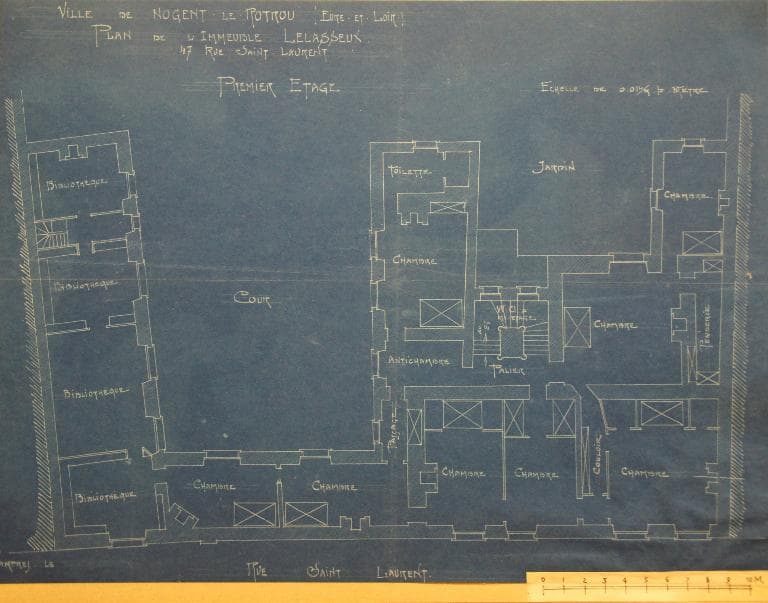 VILLE DE NOGENT LE ROTROU (EURE ET LOIR)
PLAN DE L'IMMEUBLE LELASSEUX
47 RUE SAINT LAURENT
PREMIER ETAGE
ECHELLE DE 0.0196 P METRE
JARDIN
BIBLIOTHEQUE
TOILETTE
CHAMBRE
BIBLIOTHEQUE
CHAMBRE
COUR
W.C. à
CHAMBRE
PENDERIE
ANTICHAMBRE
PALIER
BIBLIOTHEQUE
PASSAGE
COULOIR
BIBLIOTHEQUE
CHAMBRE
CHAMBRE
CHAMBRE
CHAMBRE
CHAMBRE
LE
RUE SAINT LAURENT.
0 1 2 3 4 5 6 7 8 9 10 M.